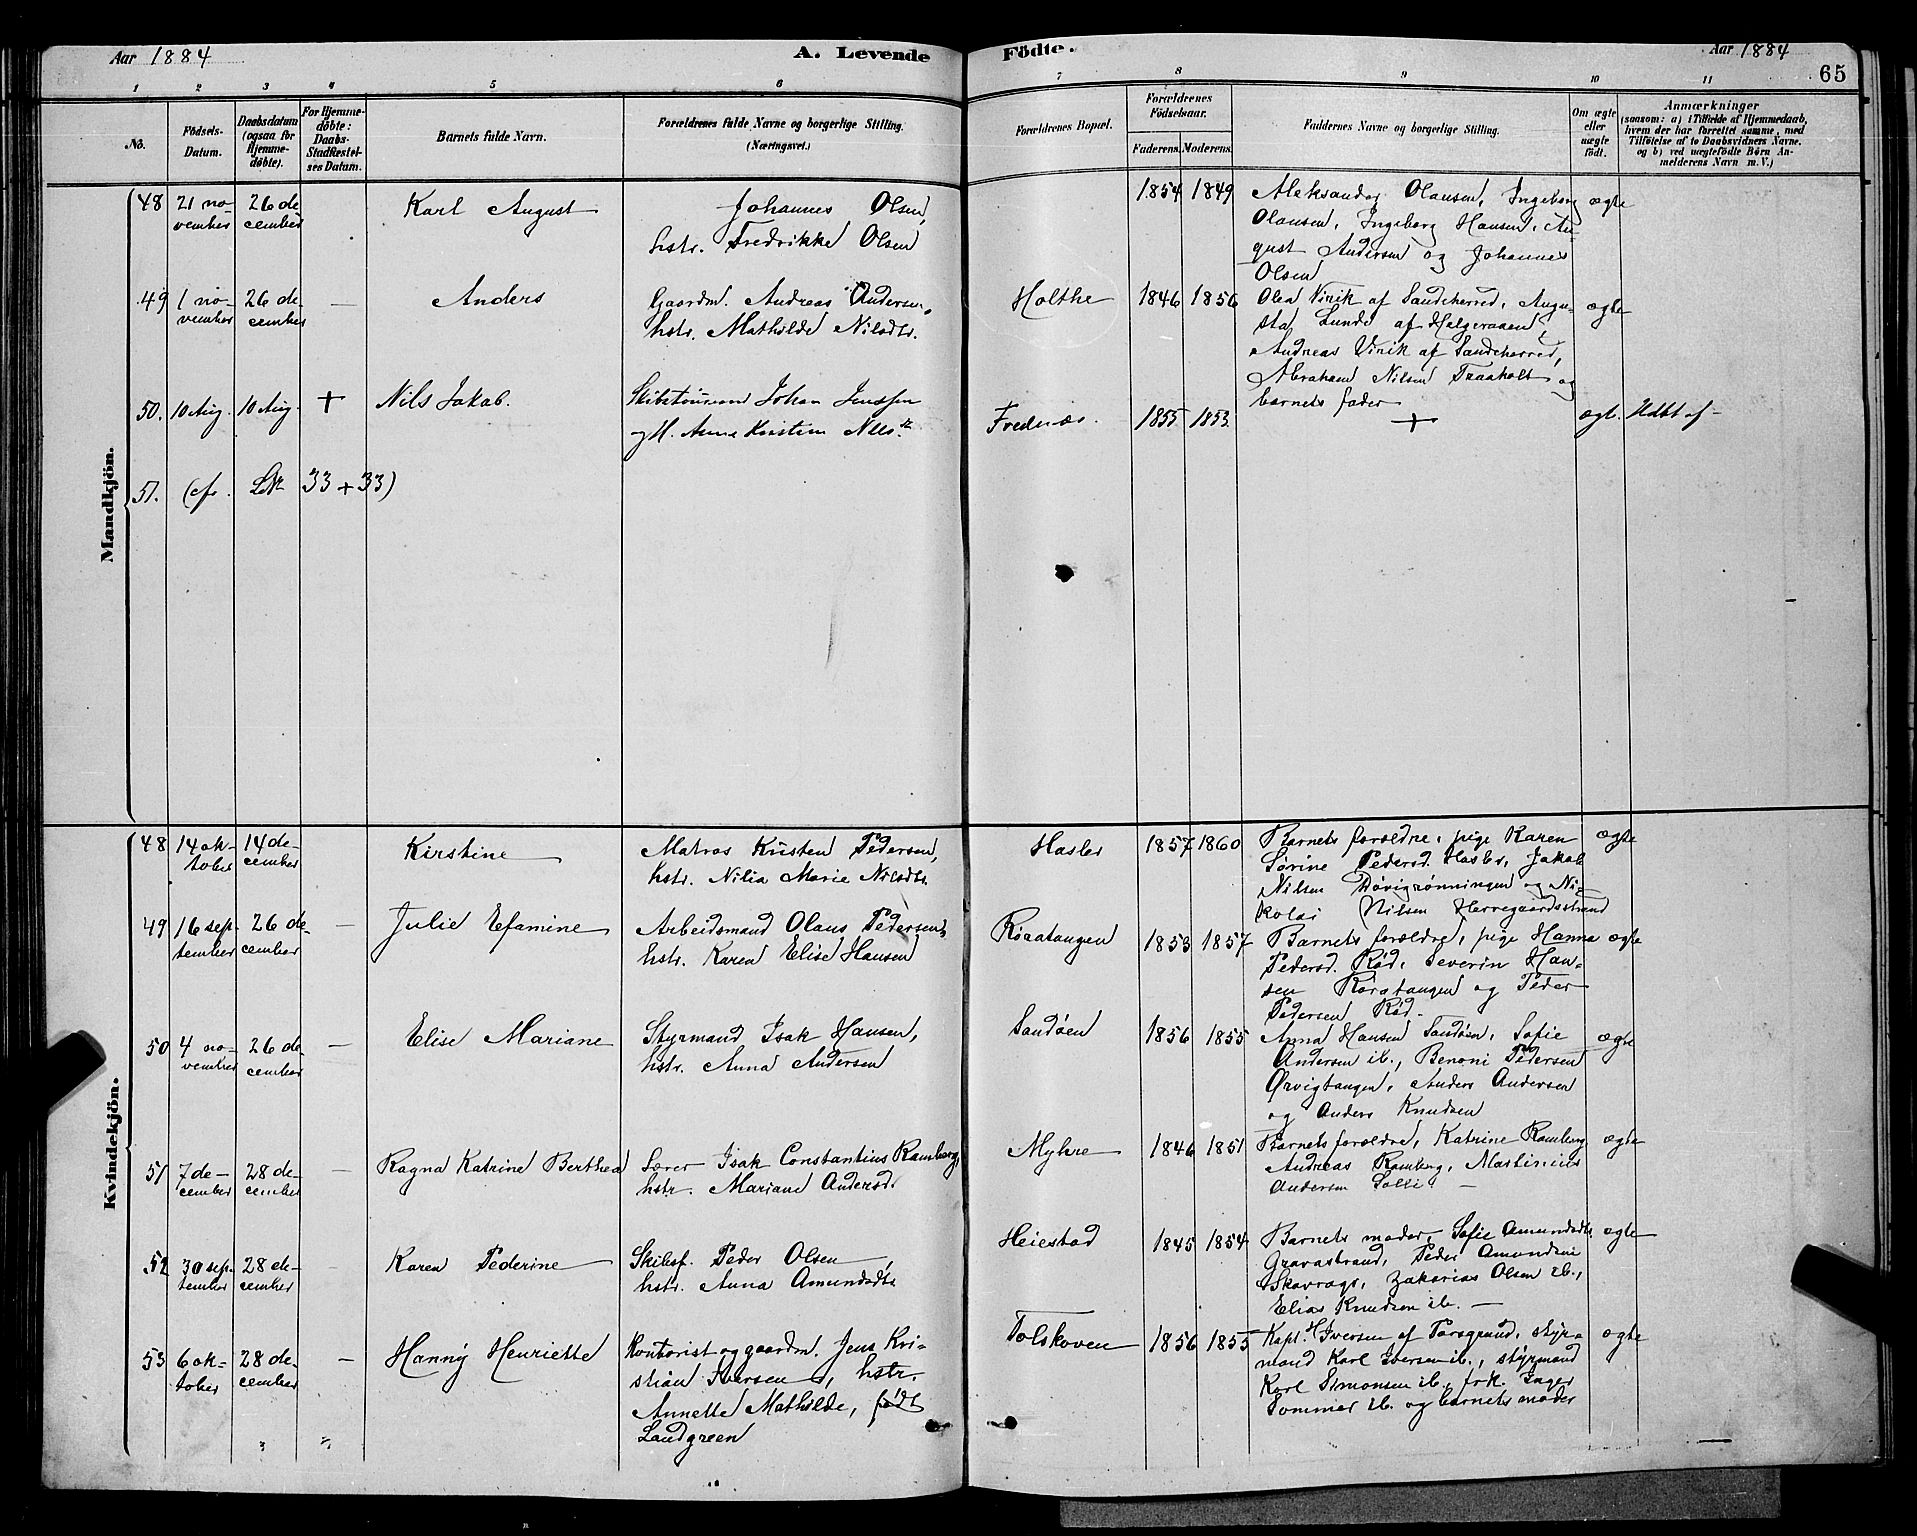 Aar 1884
A. Levende Födte.
Aar 1884
65
1 2 3 4 5 6 7 8 9 10 11
No.
Födsels-Datum.
Daabsdatum (ogsaa for Hjemme-döbte).
For Hjemme-döbte: Daabs-Stadfæstel-ses Datum.
Barnets fulde Navn.
Forældrenes fulde Navne og borgerlige Stilling. (Næringsvei.)
Forældrenes Bopæl.
Forældrenes Födselsaar.
Faderens. Moderens.
Faddernes Navne og borgerlige Stilling.
Om ægte eller uægte født.
Anmærkninger
(saasom: a) i Tilfælde af Hjemmedaab, hvem der har forrettet samme, med Tilföielse af to Daabsvidners Navne. og b) ved uægtefödte Börn An-melderens Navn m. V.)
Mandkjön.
48 21 no-vember 26 de-cember Karl August
Johannes Olsen,
hstr. Fredrikke Olsen
1854 1849
Aleksander Olausen, Ingeborg
Olausen, Ingeborg Hansen, Au-
gust Andersen og Johannes
Olsen
ægte
49 1 no-vember 26 de-cember — Anders
Gaardm. Andreas Andersen,
hstr. Mathilde Nilsdtr.
Holthe 1846 1856
Olea Virik af Sandeherred, Augu-
sta Lunde af Helgeraaen,
Andreas Virik af Sandeherred,
Abraham Nilsen Traaholt og
barnets fader
ægte
50. 10 Aug. 10 Aug. + Nils Jakob.
Skibstømmerm Johan Jensen
og H. Anne Kirstine Nils.dtr
Frednæs. 1855 1853. +
ægt. Udbt af —
51. (cfr. LNo 33 + 33)
Kvindekjön.
48 14 ok-tober 14 de-cember Kirstine
Matros Kristen Pedersen,
hstr. Nilia Marie Nilsdtr.
Hasler 1857 1860
Barnets forældre, pige Karen
Sørine Pedersd. Hasler, Jakob
Nilsen Døvigrønningen og Ni-
kolai Nilsen Herregaardsstrand
ægte
49 16 sep-tember 26 de-cember — Julie Efamine
Arbeidsmand Olaus Pedersen,
hstr. Karen Elise Hansen
Røratangen 1853 1857
Barnets forældre, pige Hanna
Pedersd. Rød, Severin Han-
sen Røratangen og Peder
Pedersen Rød.
ægte
50 4 no-vember 26 de-cember — Elise Mariane
Styrmand Isak Hansen,
hstr. Anna Andersen
Sandøen 1856 1855
Anna Hansen Sandøen, Sofie
Andersen ib., Benoni Pedersen
Ørvigtangen, Anders Andersen
og Anders Knudsen
ægte
51 7 de-cember 28 de-cember — Ragna Katrine Berthea
Lærer Isak Constantius Ramberg,
hstr. Mariane Andersd.
Myhre 1846 1851
Barnets forældre, Katrine Ramberg
Andreas Ramberg, Martinius
Andersen Solli. —
ægte
52 30 sep-tember 28 de-cember Karen Pederine
Skibsf. Peder Olsen,
hstr. Anna Amundsdtr.
Heiestad 1845 1854
Barnets moder, Sofie Amundsdtr.
Gravastrand, Peder Amundsen
Skavrage, Zakarias Olsen ib.,
Elias Knudsen ib. —
ægte
53 6 ok-tober 28 de-cember — Hanny Henriette
Kontorist og gaardm. Jens Kri-
stian Iversen, hstr.
Annette Mathilde, født
Landgreen
Tolskoven 1856 1855
Kapt. H Iversen af Porsgrund, styr-
mand Karl Iversen ib., styrmand
Karl Simonsen ib., frk. Inger
Sommer ib. og barnets moder
ægte